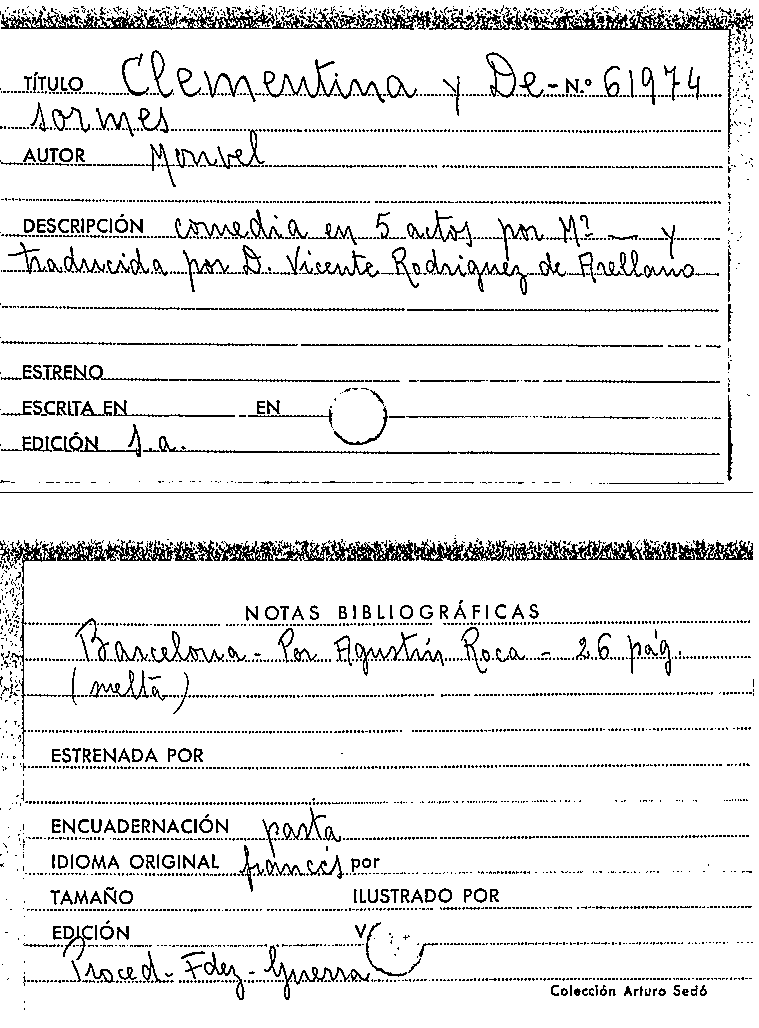 TÍTULO Clementina y De- N.º 61974
sormes
AUTOR Monvel
DESCRIPCIÓN comedia en 5 actos por Mº — y
traducida por D. Vicente Rodriguez de Arellano
ESTRENO
ESCRITA EN EN
EDICIÓN s.a.
NOTAS BIBLIOGRÁFICAS
Barcelona - Por Agustín Roca - 26 pág.
(suelta)
ESTRENADA POR
ENCUADERNACIÓN pasta
IDIOMA ORIGINAL francés por
TAMAÑO ILUSTRADO POR
EDICIÓN V
Proced - Fdez - Guerra
Colección Arturo Sedó